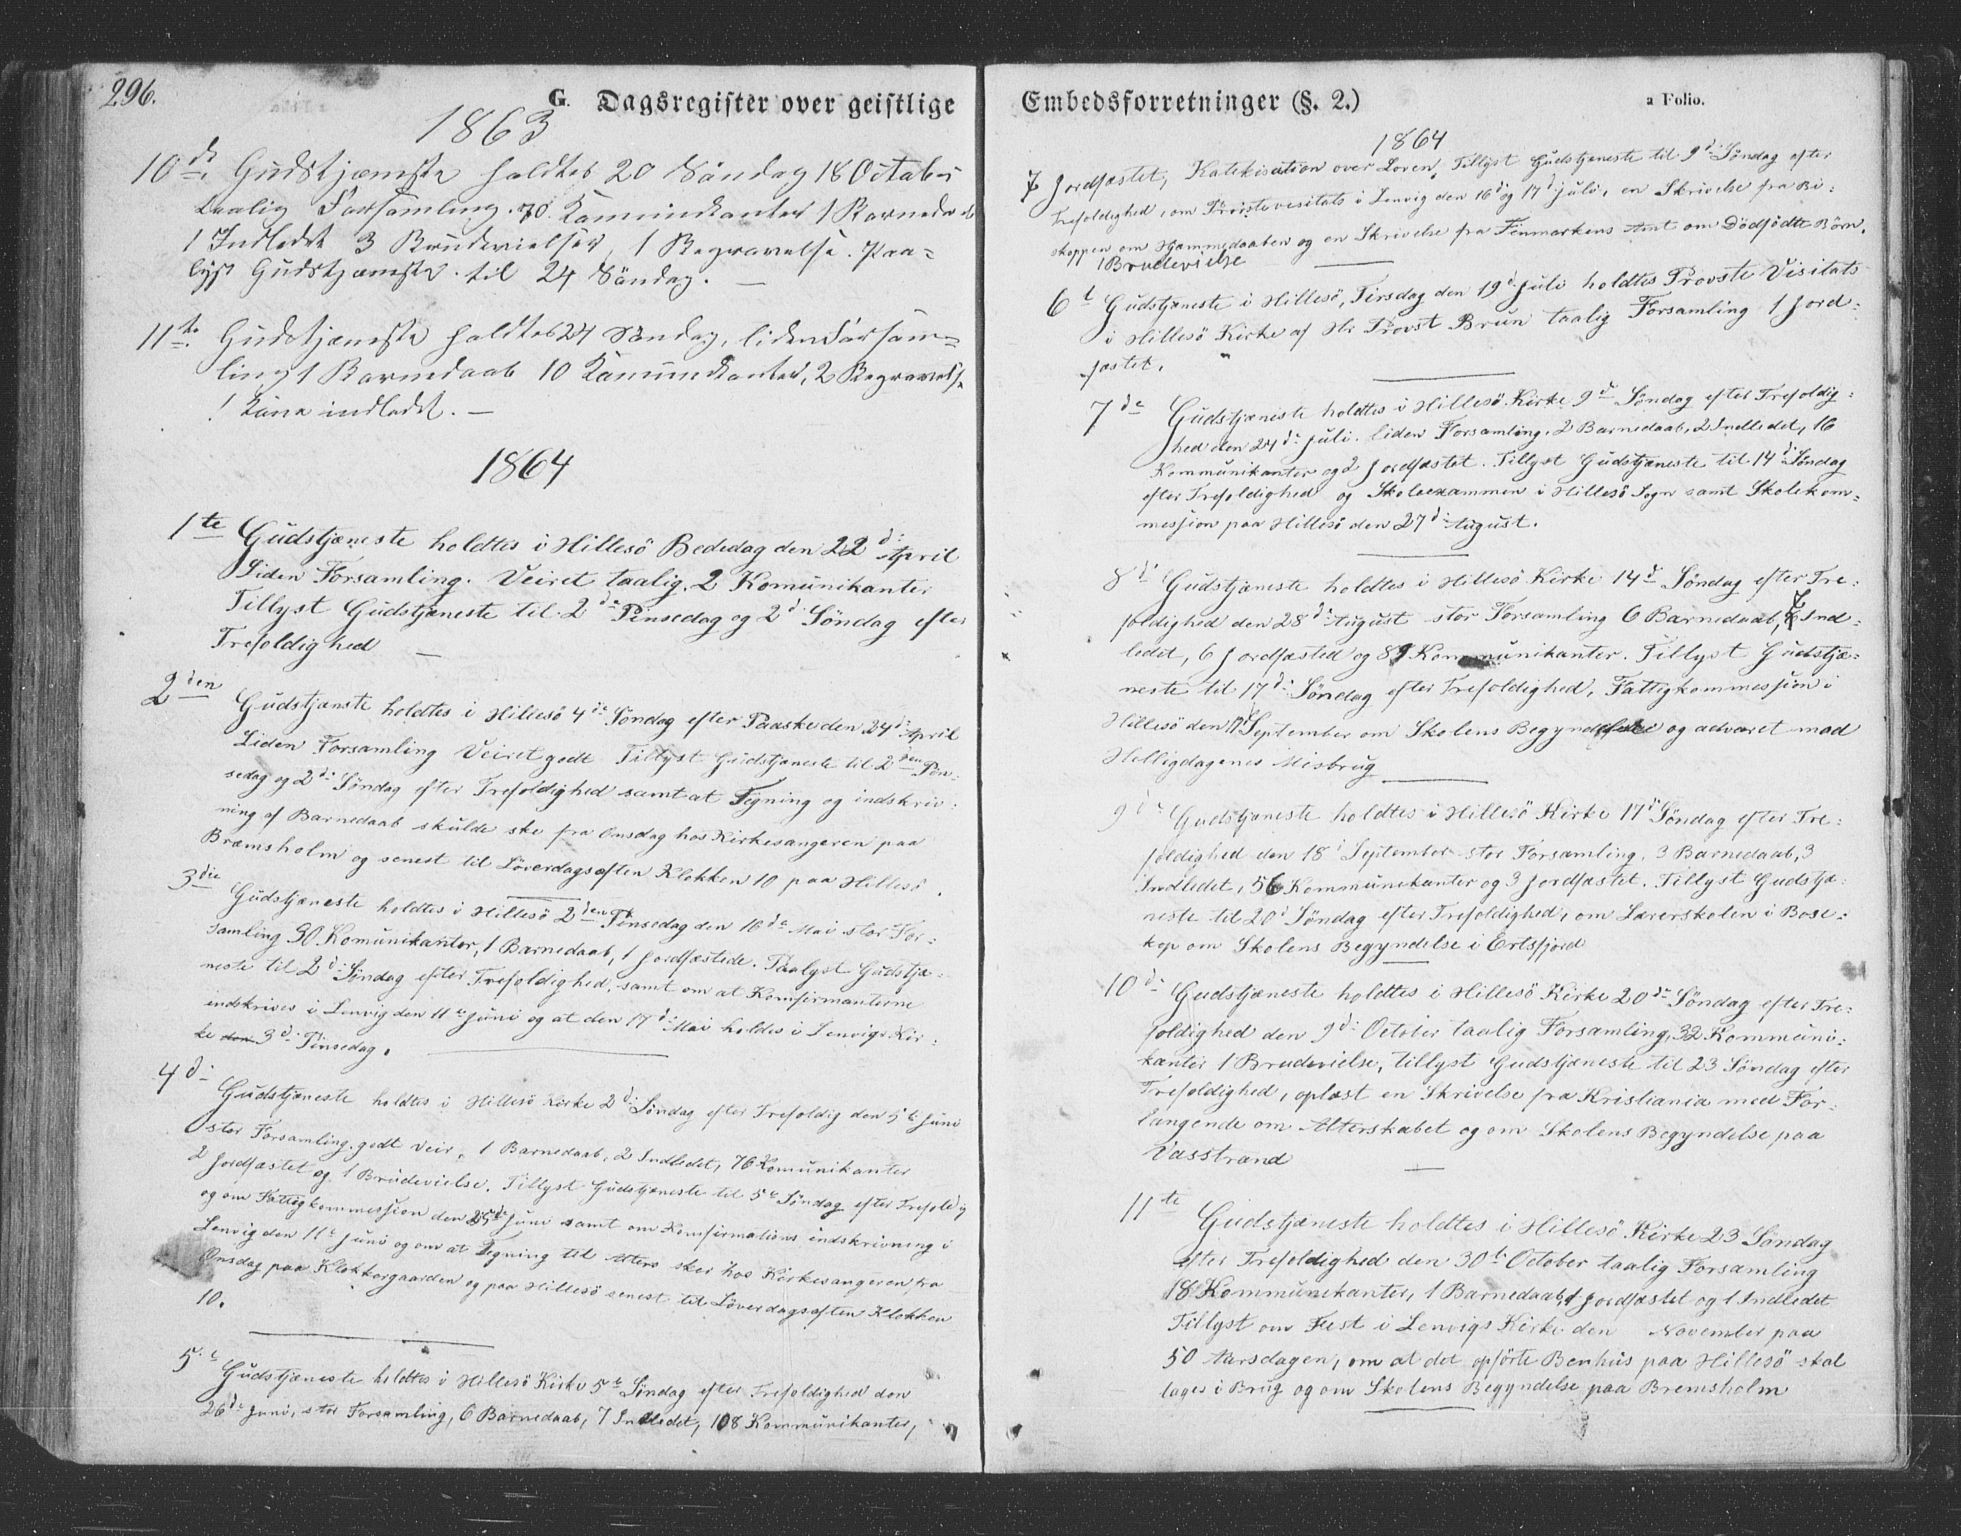 296.
G. Dagsregister over geistlige
1863
10de. Gudstjæneste holdtes 20 Søndag 18 October
taalig Forsamling. 70. Kommunikanter 1 Barnedaab
1 Indledet 3 Brudevielser, 1 Begravelse. Paa-
lyst Gudstjæneste til 24 Søndag. —
11te. Gudstjæneste holdtes 24 Søndag, liden Forsam-
ling 1 Barnedaab 10 Kommunikanter, 2 Begravelse
1 Kone indledet. —
1864
1te Gudstjæneste holdtes i Hillesö Bededag den 22d: April
Liden Forsamling. Veiret taalig. 2 Komunikanter
Tillyst Gudstjæneste til 2de Pinsedag og 2d: Søndag efter
Trefoldighed —
2den Gudstjænste holdtes i Hillesö 4de Søndag efter Paaske den 24d: April
Liden Forsamling Veiret godt Tillyst Gudstjæneste til 2den Pin-
sedag og 2d: Søndag efter Trefoldighed samt at Tegning og indskriv:
ning af Barnedaab skulde ske fra Onsdag hos Kirkesangeren paa
Bræmsholm og senest til Löverdagsaften Klokken 10 paa Hillesö.
3die Gudstjæneste holdtes i Hillesö 2den Pinsedag den 16de Mai stor For:
samling 30 Komunikanter, 1 Barnedaab, 1 Jordfæstede. Paalyst Gudstjæ:
neste til 2d: Søndag efter Trefoldighed, samt om at Konfirmanterne
indskrives i Lenvig den 11te Juni og at den 17d: Mai holdes i Lenvigs Kir:
ke den 3d: Pinsedag.
4d: Gudstjæneste holdtes i Hillesö Kirke 2d: Søndag efter Trefoldig den 5te Juni
stor Forsamling, godt Veir, 1 Barnedaab, 2 Indledet, 76 Komunikanter
2 Jordfæstet og 1 Brudevielse. Tillyst Gudstjæneste til 5te Søndag efter Trefoldig
og om Fattigkommesjion den 25de Juni samt om Konfirmations indskrivning i
Lenvig den 11te Juni og om at Tegning til Alters sker hos Kirkesangeren fra
Onsdag paa Klokkergaarden og paa Hillesö senest til Löverdagsaften Klokken
10.
5te Gudstjæneste holdtes i Hillesö Kirke 5te Søndag efter Trefoldighed den
26de Juni, stor Forsamling, 6 Barnedaab, 7 Indledet, 108 Kommunikanter,
Embedsforretninger (§. 2.)
a Folio.
1864
7 Jordfæstet, Katekisation over Loven, Tillyst Gudstjeneste til 9d: Søndag efter
Trefoldighed, om Provstevisitats i Lenvig den 16d og 17d Juli, en Skrivelse fra Bi:
skoppen om Hjemmedaaben og en Skrivelse fra Finmarkens Amt om Dödfödte Börn.
1 Brudevielse
6t Gudstjæneste i Hillesö, Tirsdag den 19d Juli holdtes Provste Visitats
i Hillesö Kirke af Hr Provst Brun taalig Forsamling 1 Jord:
fæstet.
7de Gudstjæneste holdtes i Hillesö Kirke 9de Søndag efter Trefoldig:
hed den 24d: Juli. liden Forsamling. 2 Barnedaab, 2 Indledet, 16
Kommunikanter og 2 Jordfæstet. Tillyst Gudstjæneste til 14d Søndag
efter Trefoldighed og Skoleexammen i Hillesö Sogn samt Skolekom:
mesjion paa Hillesö den 27d: August.
8d: Gudstjæneste holdtes i Hillesö Kirke 14d Søndag efter Tre:
foldighed den 28d: August stor Forsamling 6 Barnedaab, 7 Ind:
ledet, 6 Jordfæsted og 89 Kommunikanter. Tillyst Gudstjæ:
neste til 17d: Søndag efter Trefoldighed, Fattigkommesjion i
Hillesö den 17d September om Skolens Begyndelse og advaret mod
Helligdagenes Misbrug
9d: Gudstjæneste holdtes i Hillesö Kirke 17d Søndag efter Tre:
foldighed den 18d September stor Forsamling, 3 Barnedaab, 3
Indledet, 56 Kommunikanter og 3 Jordfæstet. Tillyst Gudstjæ:
neste til 20d Søndag efter Trefoldighed, om Lærerskolen i Bose:
kop om Skolens Begyndelse i Ertsfjord
10d: Gudstjæneste holdtes i Hillesö Kirke 20de Søndag efter Tre:
foldighed den 9d: October taalig Forsamling, 32 Kommuni:
kanter 1 Brudevielse, tillyst Gudstjæneste til 23 Søndag efter
Trefoldighed, oplæst en Skrivelse fra Kristiania med For:
langende om Alterskabet og om Skolens Begyndelse paa
Vasstrand —
11te Gudstjæneste holdtes i Hillesö Kirke 23 Søndag
efter Trefoldighed den 30te October taalig Forsamling
18 Kommunikanter, 1 Barnedaab, 1 Jordfæstet og 1 Indledet
Tillyst om Fest i Lenvigs Kirke den November paa
50 Aarsdagen, om at det opförte Benhus paa Hillesö skal
tages i Brug og om Skolens Begyndelse paa Bremsholm